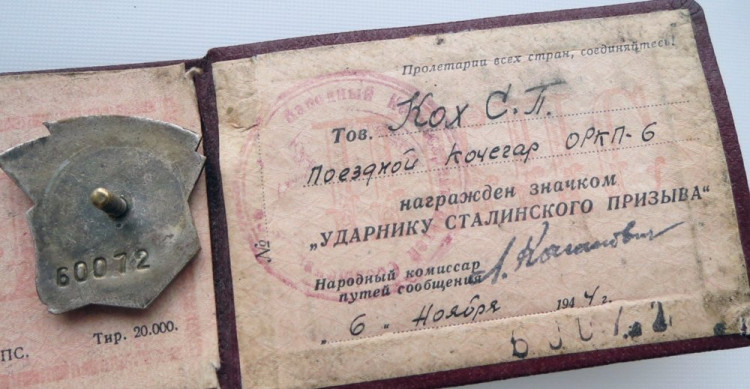 60072
ПС. Тир. 20.000.
Пролетарии всех стран, соединяйтесь!
Тов. Кох С.П.
Поездной кочегар ОРКП-6
награжден значком
„УДАРНИКУ СТАЛИНСКОГО ПРИЗЫВА“
Народный комиссар
путей сообщения Л. Каганович
„ 6 „ Ноября 1944 г.
№
Народный